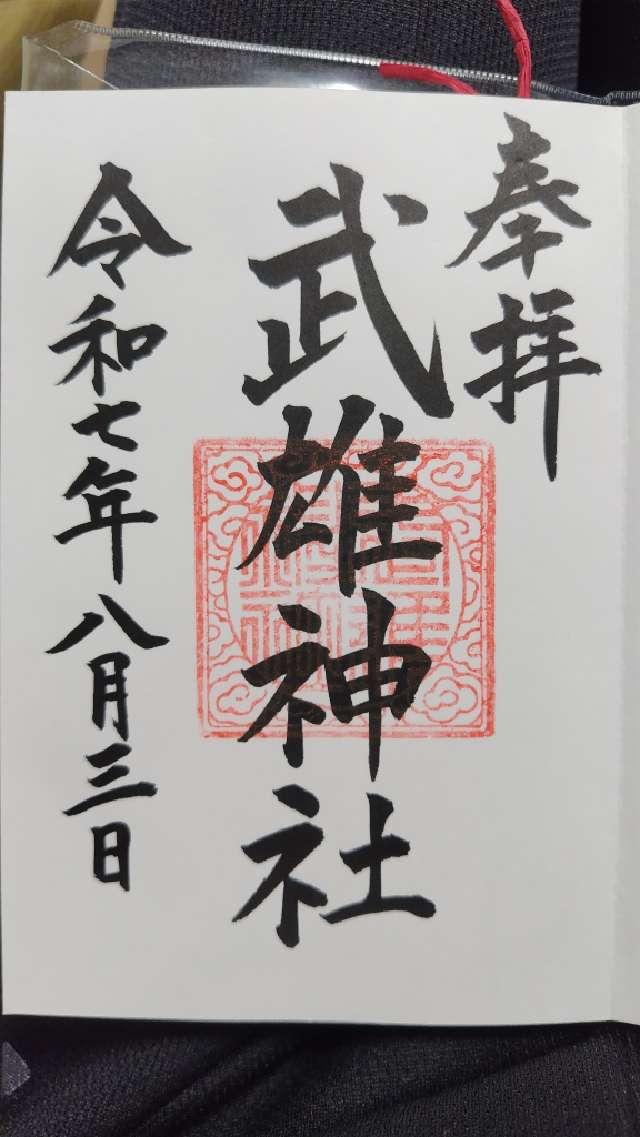 奉拝
武雄神社
令和七年八月三日